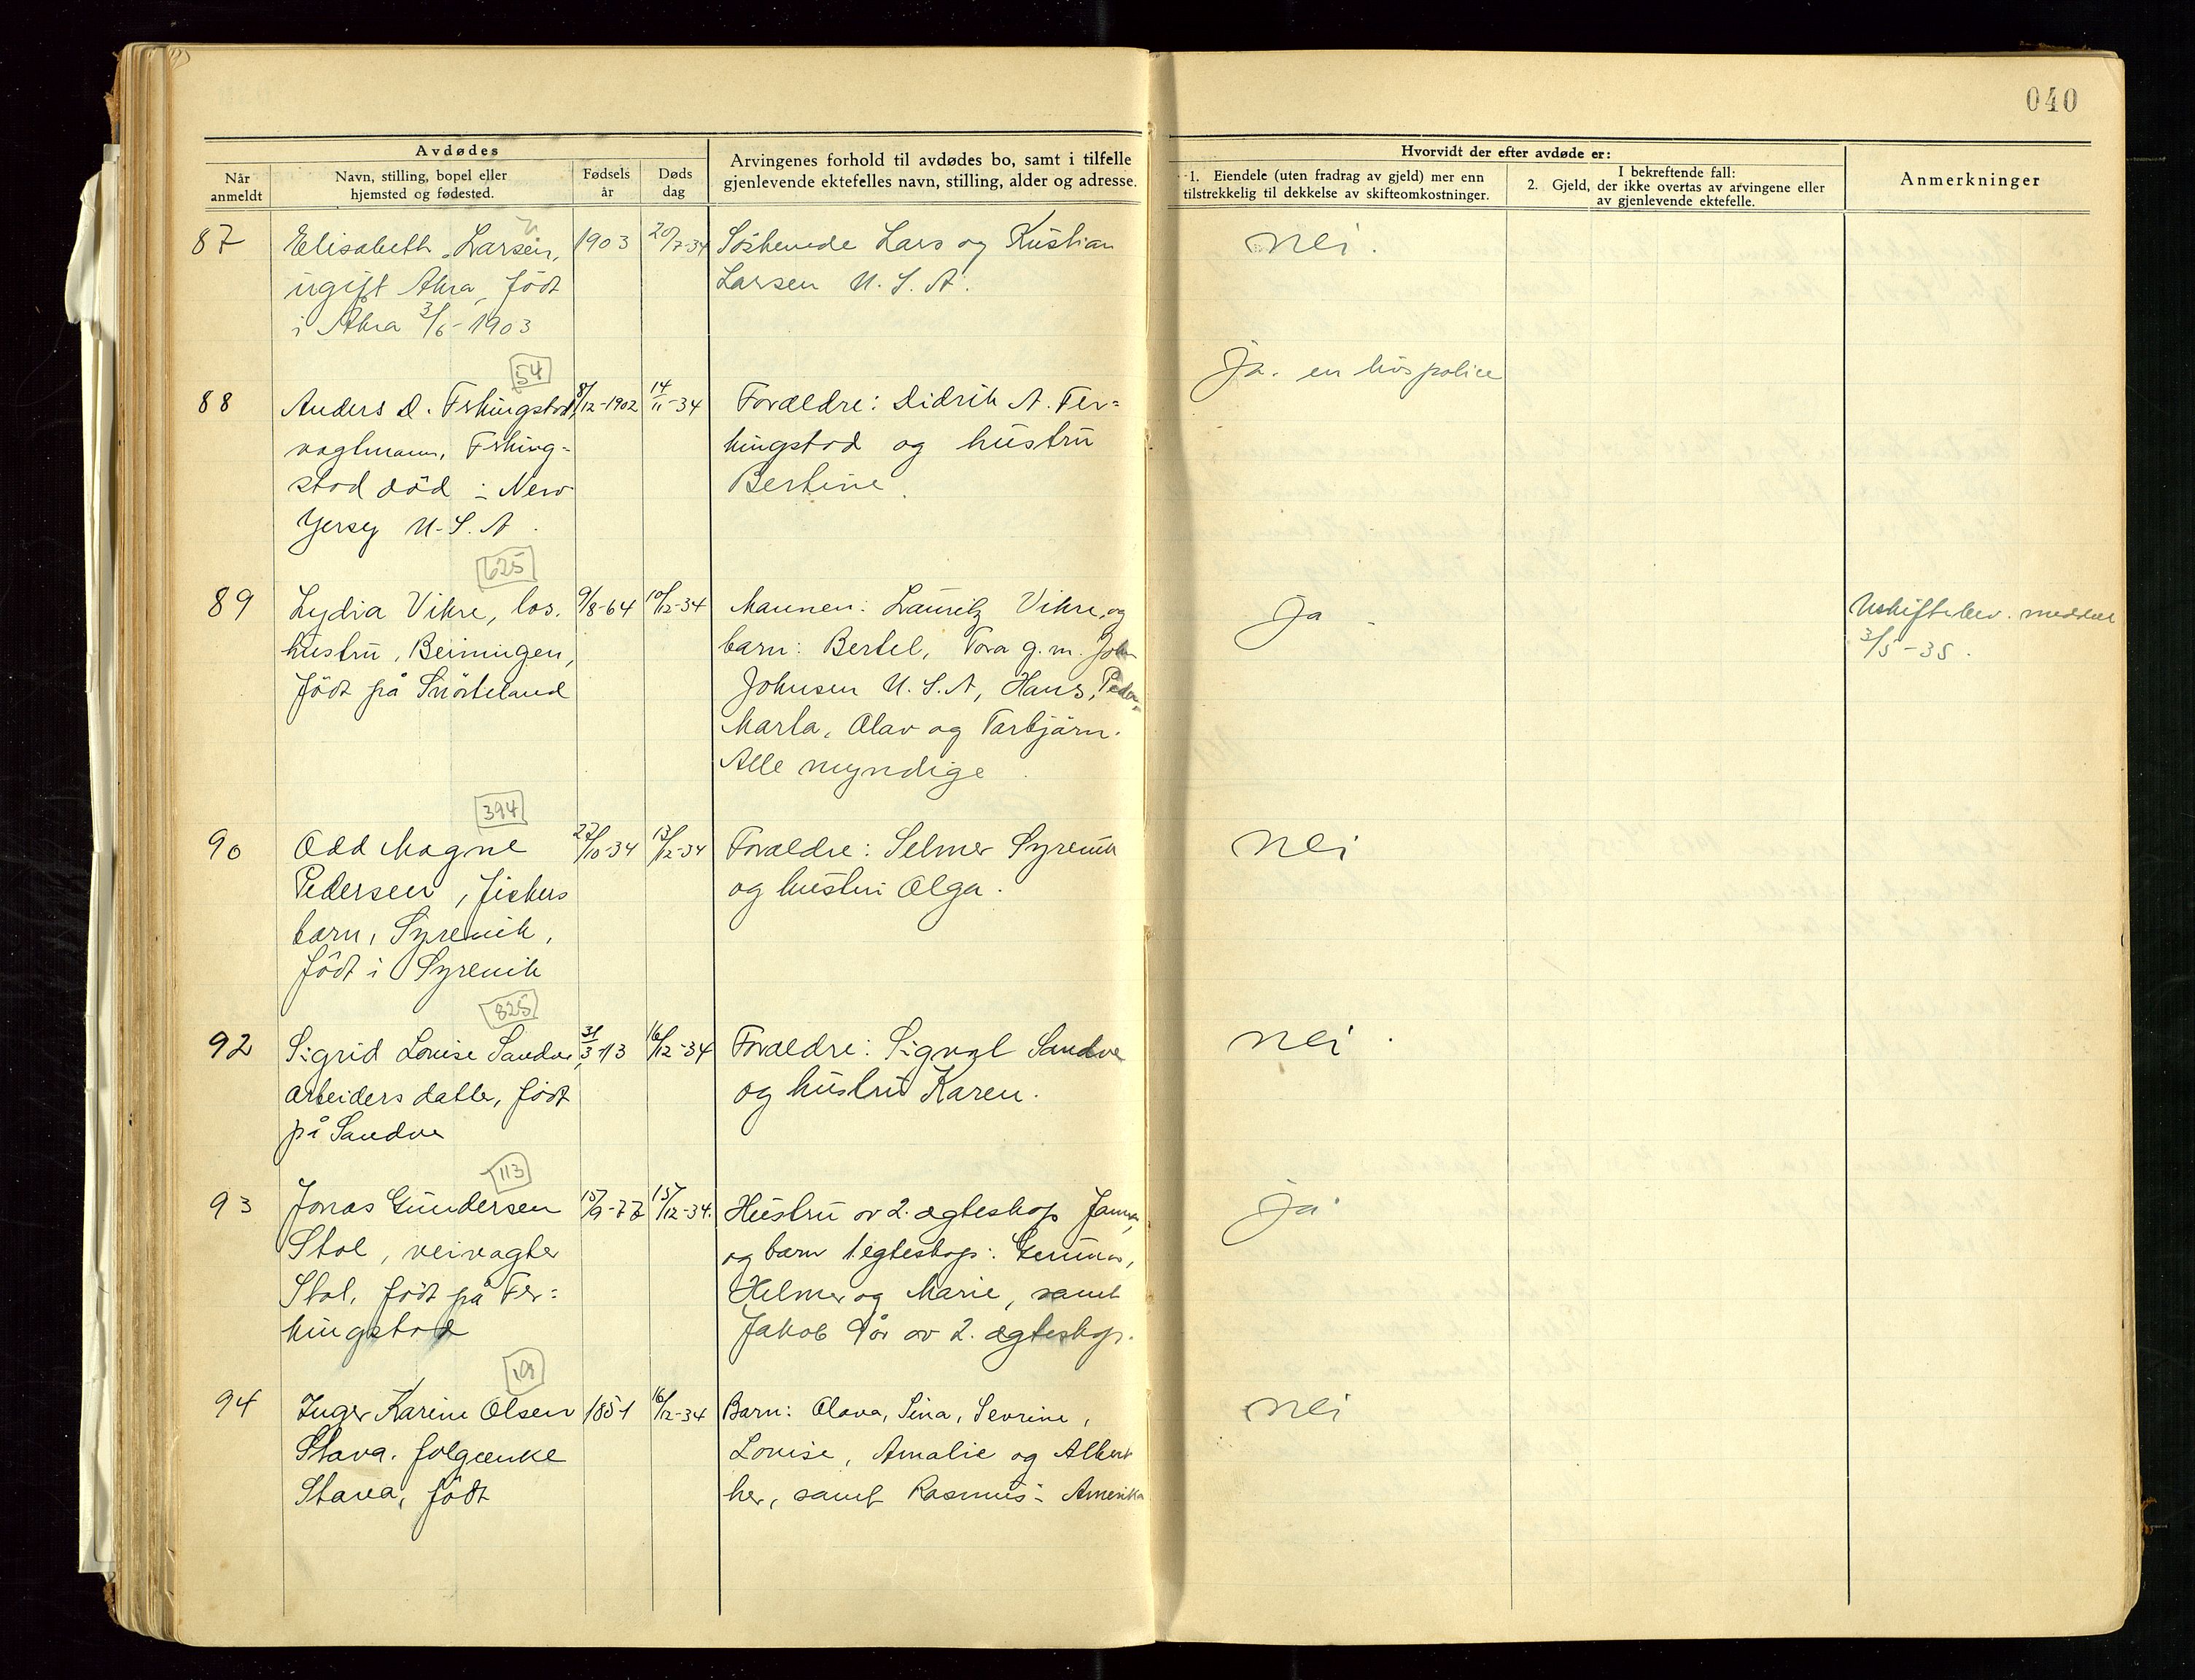 040
Avdødes
Når anmeldt
Navn, stilling, bopel eller hjemsted og fødested.
Fødsels år
Døds dag
Arvingenes forhold til avdødes bo, samt i tilfelle gjenlevende ektefelles navn, stilling, alder og adresse.
Hvorvidt der efter avdøde er:
1. Eiendele (uten fradrag av gjeld) mer enn tilstrekkelig til dekkelse av skifteomkostninger.
I bekreftende fall:
2. Gjeld, der ikke overtas av arvingene eller av gjenlevende ektefelle.
Anmerkninger
87
Elisabeth Larsen,
ugift Akra, født
i Akra 3/6-1903
1903
20/7-34
Søskende Lars og Kristian
Larsen U.S.A.
nei.
54
88
Anders D. Ferkingstad,
vagtmann, Ferking-
stad död i New
Yersey U.S.A.
8/12-1902
14/11-34
Forældre: Didrik A. Fer-
kingstad og hustru
Bertine.
ja. en livspolice
625
89
Lydia Vikre, los.
hustru,
født på
9/8-64
10/12-34
Mannen: Lauritz Vikre, og
barn: Bertel, Tora g.m. John
Johnsen U.S.A, Hans, Peder,
Marta, Olav og Torbjørn.
Alle myndige.
Ja
Uskiftebev. meddelt
3/5-35.
394
90
Odd Magne
Pedersen, fiskers
barn, Syrevik,
født i Syrevik
27/10-34
13/12-34
Forældre: Selmer Syrevik
og hustru Olga.
nei
825
92
Sigrid Lovise Sandve,
arbeiders datter, født
på Sandve
31/3-13
16/12-34
Forældre: Sigval Sandve
og hustru Karen.
nei.
113
93
Jonas Gundersen
Stol, veivagter
Stol, født på Fer-
kingstad
15/9-77
15/12-34.
Hustru av 2. ægteskap
og barn 1. egteskap:
Helmer og Marie, samt
Jakob 9 år av 2. ægteskap.
ja
94
Inger Karine Olsen
Stava. folgeenke
Stava, født
1851
16/12-34
Barn: Olava, Sina, Sevrine,
Lovise, Amalie og Albert
her, samt Rasmus i Amerika
nei